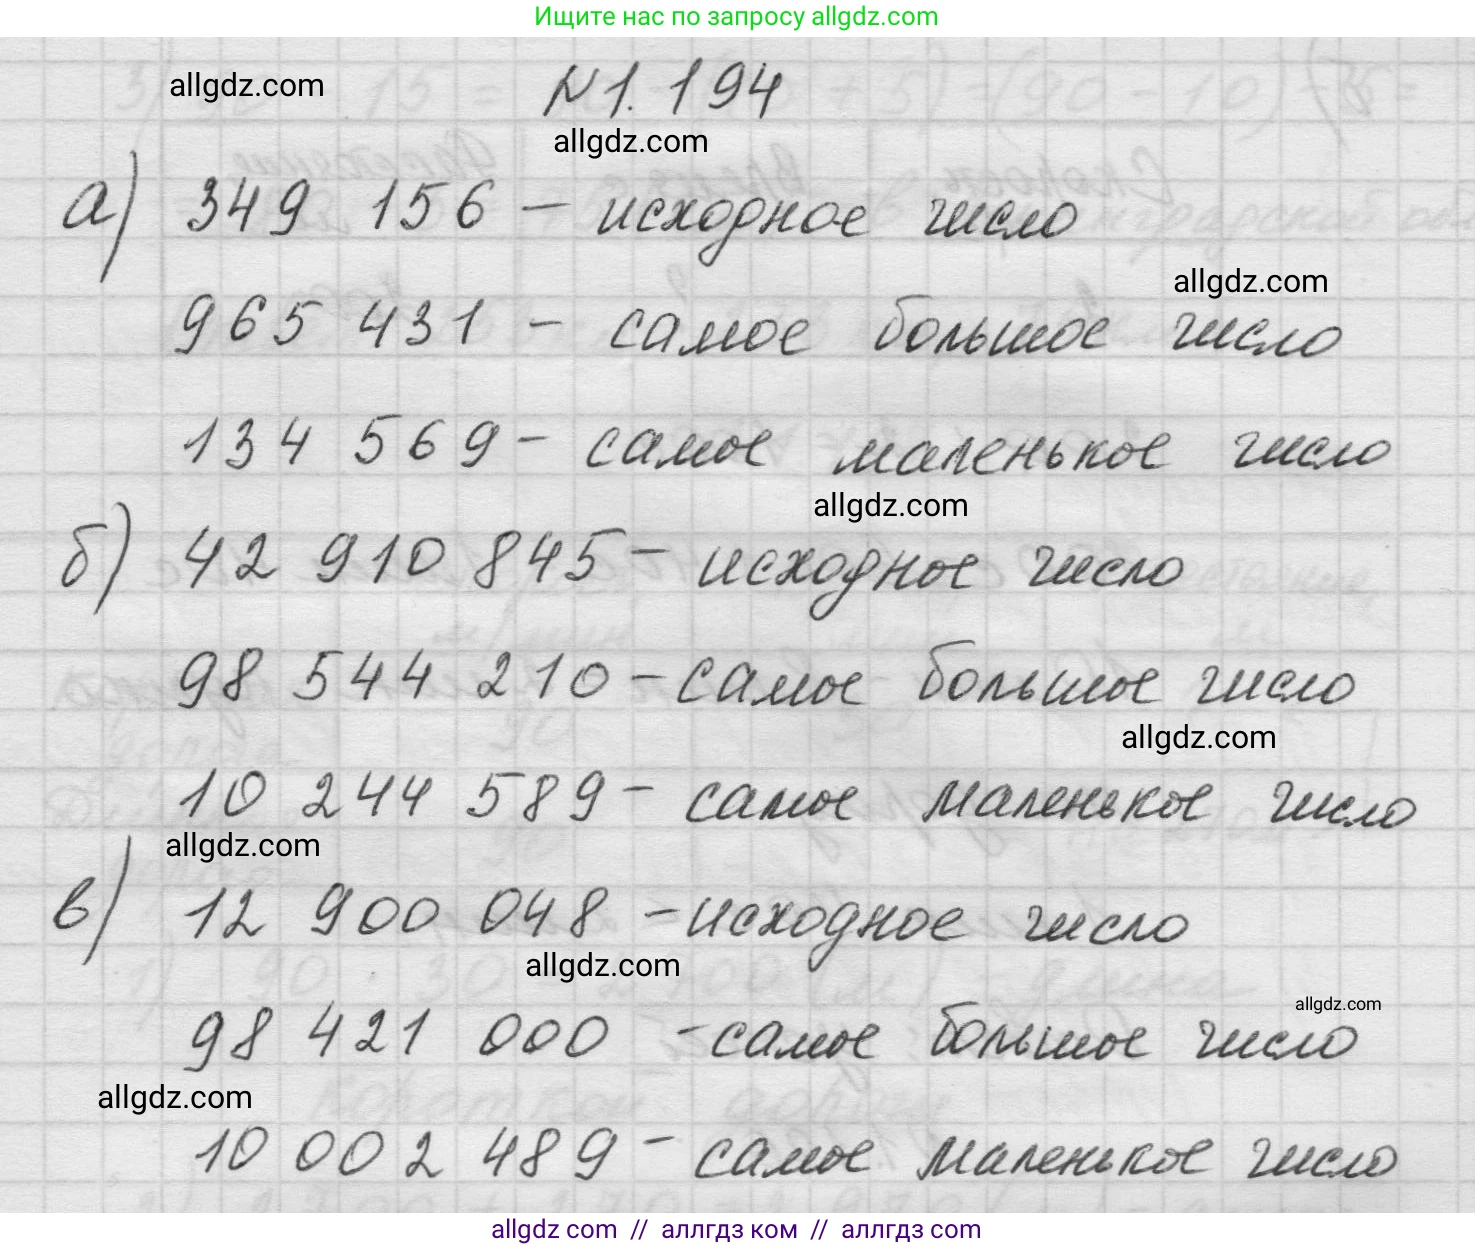 Ищите нас по запросу allgdz.com
allgdz.com
№1.194
allgdz.com
а) 349 156 – исходное число
allgdz.com
965 431 – самое большое число
134 569 – самое маленькое число
allgdz.com
б) 42 910 845 – исходное число
98 544 210 – самое большое число
allgdz.com
10 244 589 – самое маленькое число
allgdz.com
в) 12 900 048 – исходное число
allgdz.com
allgdz.com
98 421 000 – самое большое число
allgdz.com
10 002 489 – самое маленькое число
allgdz com // аллгдз ком // аллгдз com